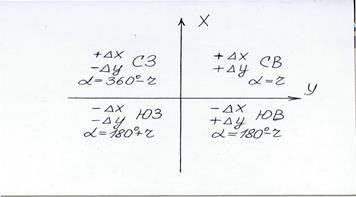 X
+Δx
-Δy СЗ
α=360°-r
+Δx
+Δy СВ
α=r
y
-Δx
-Δy ЮЗ
α=180°+r
-Δx
+Δy ЮВ
α=180°-r